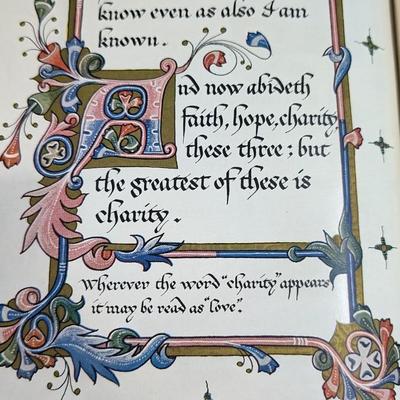 know even as also I am
known.
And now abideth
faith, hope, charity,
these three; but
the greatest of these is
charity.
Wherever the word "charity" appears
it may be read as "love".